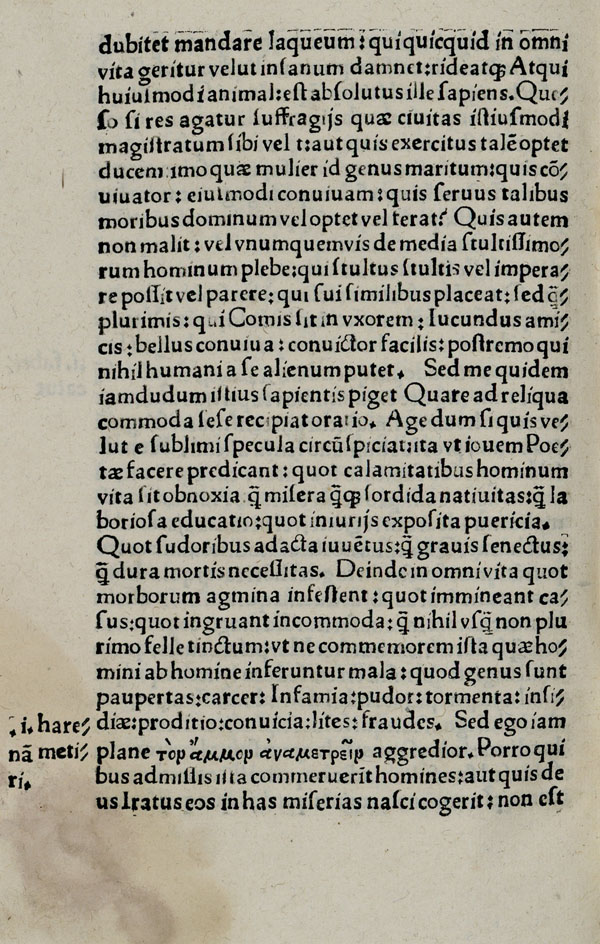 dubitet mandare laqueum: quiquicquid in omni
vita geritur velut insanum damnet: rideatqꝫ Atqui
huiusmodi animal: est absolutus ille sapiens. Que⸗
so si res agatur suffragijs quæ ciuitas istiusmodi
magistratum sibi vel t: aut quis exercitus talē optet
ducem: imo quæ mulier id genus maritum: quis cō⸗
uiuator: eiusmodi conuiuam: quis seruus talibus
moribus dominum vel optet vel ferat? Quis autem
non malit: vel vnumquemvis de media stultissimo⸗
rum hominum plebe: qui stultus stultis vel impera⸗
re possit vel parere: qui sui similibus placeat: sed q̄⸗
plurimis: qui Comis sit in vxorem: Iucundus ami⸗
cis: bellus conuiua: conuictor facilis: postremo qui
nihil humani a se alienum putet. Sed me quidem
iamdudum istius sapientis piget Quare ad reliqua
commoda sese recipiat oratio. Age dum si quis ve⸗
lut e sublimi specula circūspiciat: ita vt iouem Poe⸗
tæ facere predicant: quot calamitatibus hominum
vita sit obnoxia q̄ misera q̄qꝫ sordida natiuitas: q̄ la
boriosa educatio: quot iniurijs exposita puericia.
Quot sudoribus adacta iuuētus: q̄ grauis senectus:
q̄ dura mortis necessitas. Deinde in omni vita quot
morborum agmina infestent: quot immineant ca⸗
sus: quot ingruant incommoda: q̄ nihil vsq̄ non plu
rimo felle tinctum: vt ne commemorem ista quæ ho⸗
mini ab homine inferuntur mala: quod genus sunt
paupertas: carcer: Infamia: pudor: tormenta: insi⸗
.i. hare⸗ diæ: proditio: conuicia: lites: fraudes. Sed ego iam
nā meti⸗ plane τὸρ ἄμμορ ἀναμετρεῖρ aggredior. Porro qui
ri. bus admissis ista commeruerīt homines: aut quis de
us Iratus eos in has miserias nasci cogerit: non est